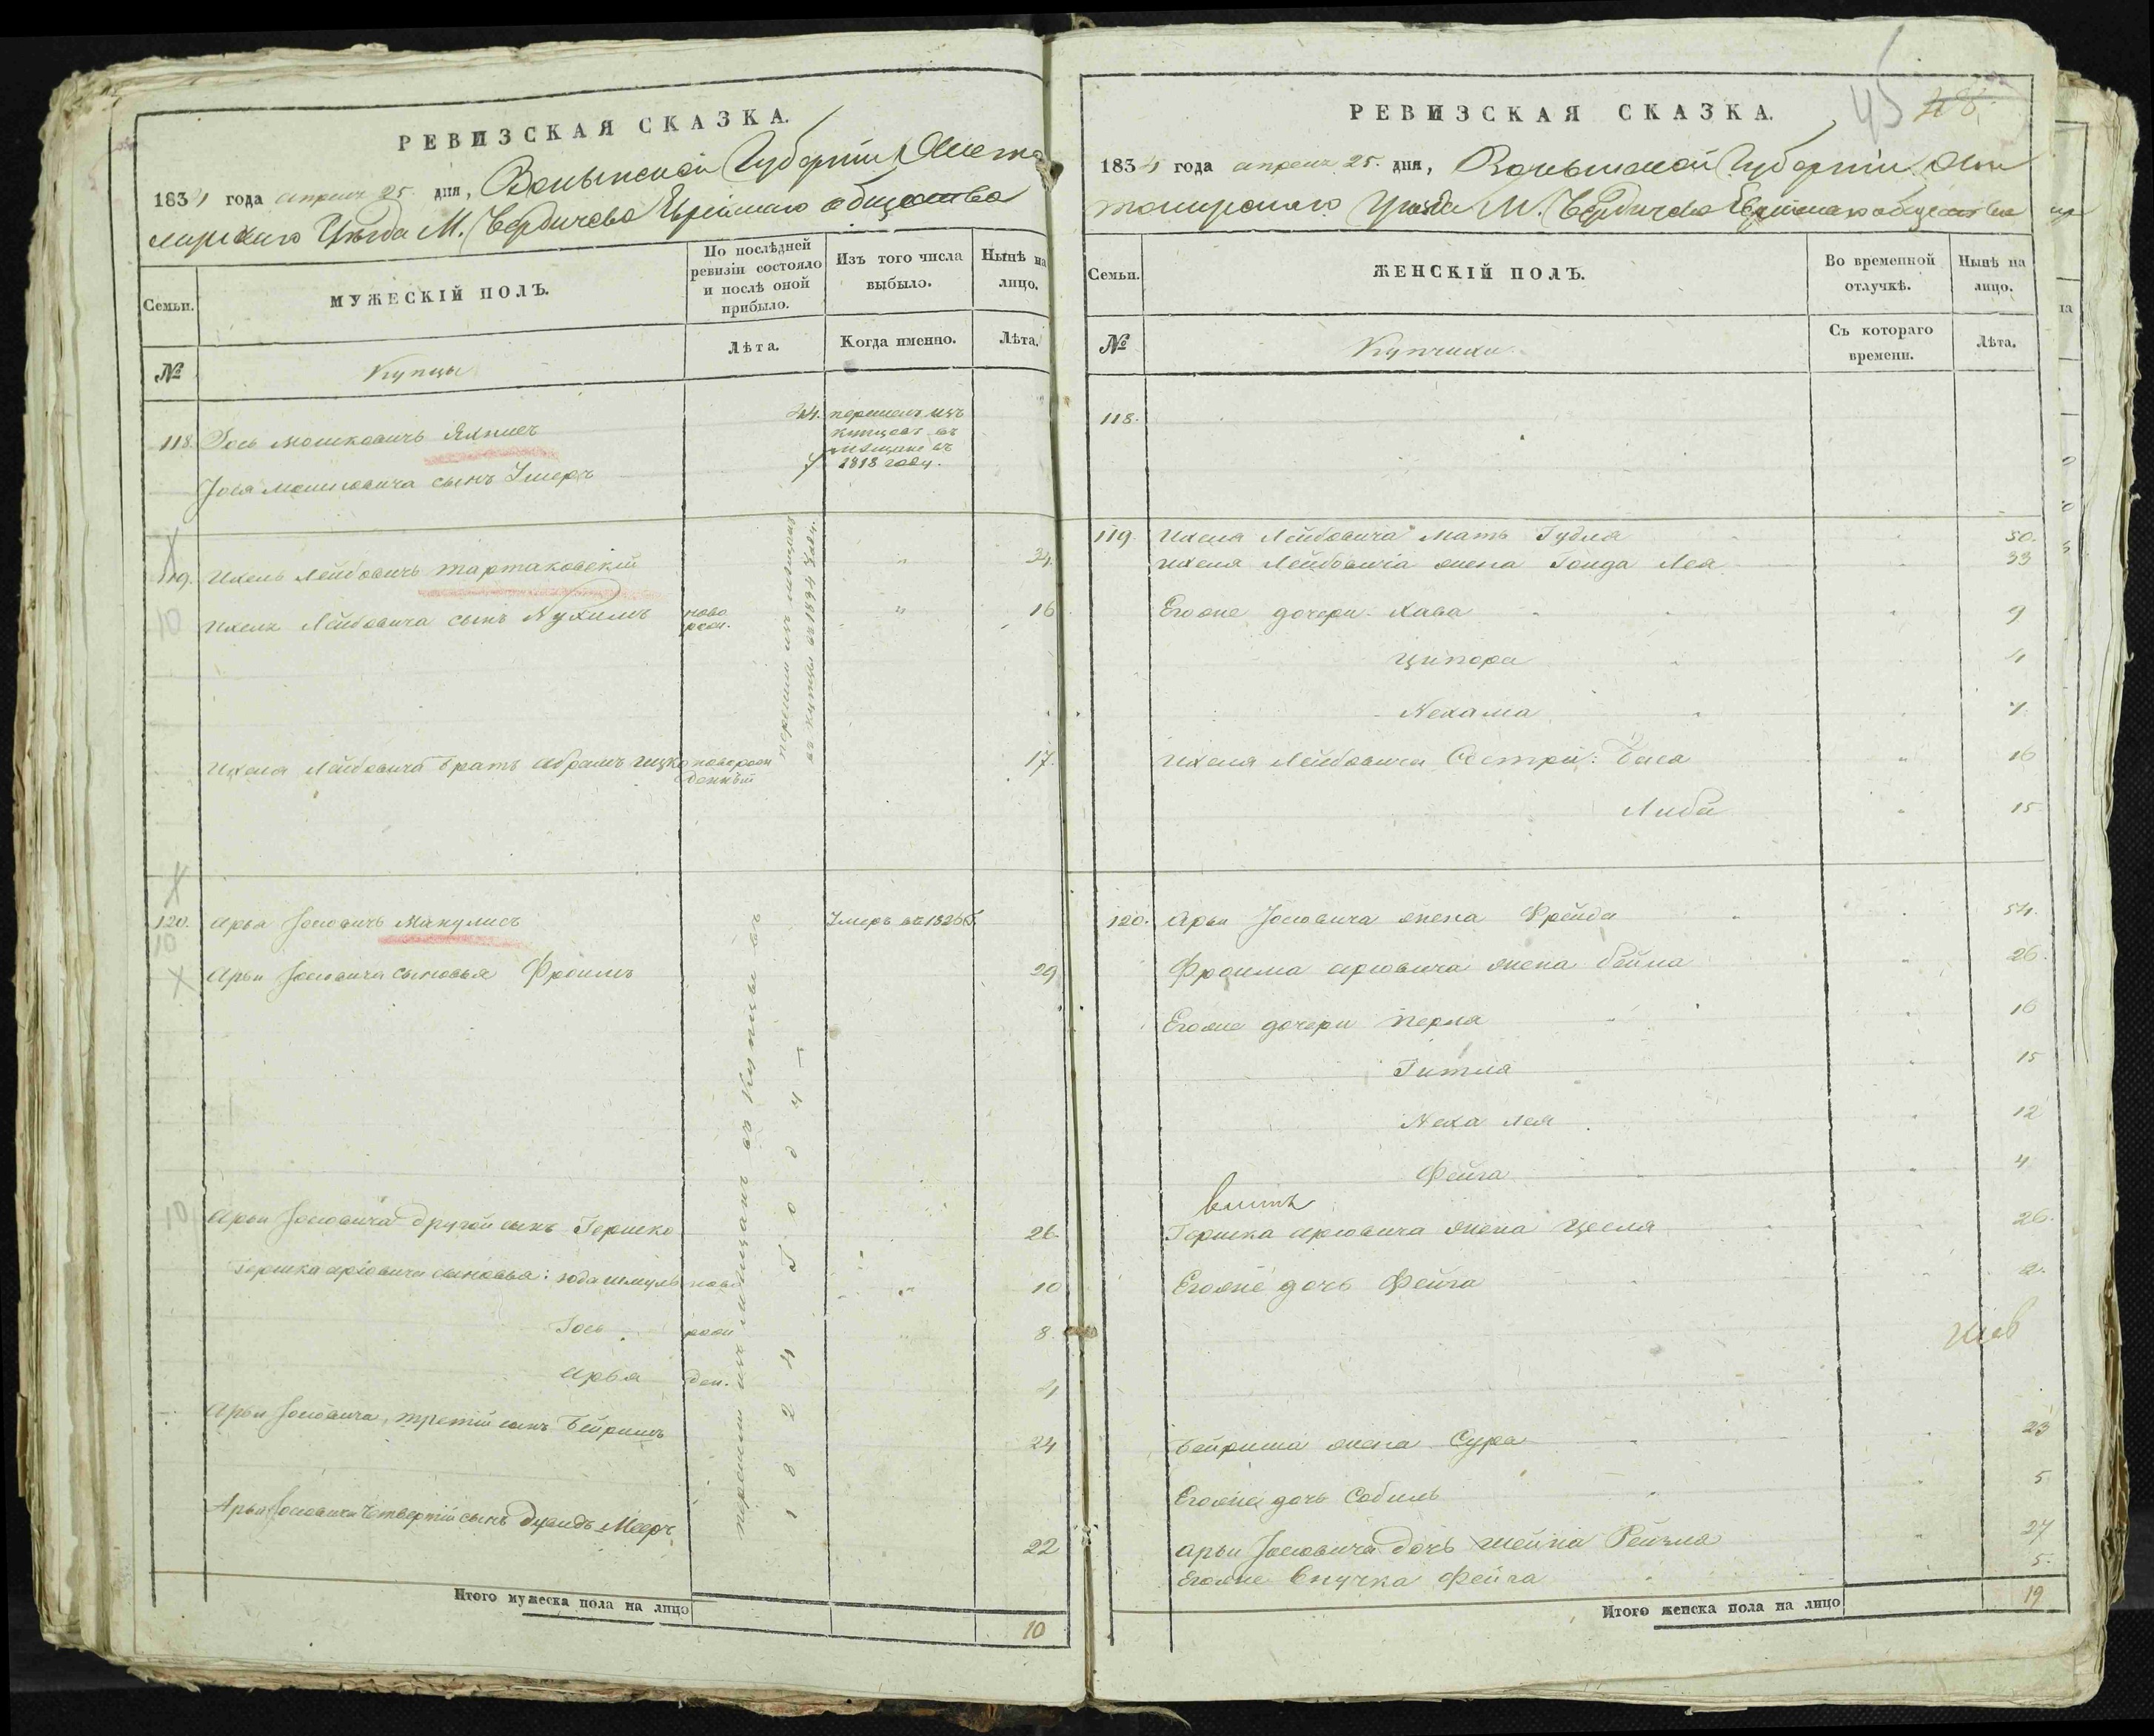 РЕВИЗСКАЯ СКАЗКА.
1834 года апреля 25. дня, Волынской Губерніи Жито
мирскаго Уезда М. Бердичева Еврейскаго общества
Семьи.
МУЖЕСКІЙ ПОЛЪ.
По послѣдней ревизіи состояло и послѣ оной прибыло.
Изъ того числа выбыло.
Нынѣ на лицо.
№
Купцы
Лѣта.
Когда именно.
Лѣта.
118. Іось Мошковичъ 44. перешелъ изъ
купцовъ въ
мещане въ
1818 году.
Іося Мошковича сынъ Умеръ
119. Ихель Лейбовичъ Тартаковскій " 34.
Ихеля Лейбовича сынъ Нухимъ ново
рож. " 16
перешли изъ мещанъ
въ купцы въ 1824 году.
Ихеля Лейбовича братъ Абрамъ Ицко новорож
денный 17.
120. Арья Іосіовичъ Манулисъ Умеръ въ 1826 Г.
10
Арьи Іосіовича сыновья Фроимъ 29
10
Арьи Іосіовича другой сынъ Гершко 26.
Гершка Аріовича сыновья: Юда Шмуль ново 10
Іось рож 8.
Арья ден. 4
Арьи Іосіовича, третій сынъ Бейришъ 24
Арьи Іосіовича четвертій сынъ Дувидъ Мееръ 22
перешли изъ мещанъ въ Купцы въ
1824 Году
Итого мужеска пола на лицо 10
РЕВИЗСКАЯ СКАЗКА.
45
1834 года апреля 25. дня, Волынской Губерніи Жи
томирскаго Уезда М. Бердичева Еврейскаго общества
Семьи.
ЖЕНСКІЙ ПОЛЪ.
Во временной отлучкѣ.
Нынѣ на лицо.
№
Купчихи
Съ котораго времени.
Лѣта.
118.
119. Ихеля Лейбовича мать Гудля 50.
Ихеля Лейбовича жена Голда Лея 33
Его же дочери Хава 9
Ципора 4
Нехама 1/2
Ихеля Лейбовича Сестры: Бася 16
Либа 15
120. Арьи Іосіовича жена Фрейда 54.
Фроима Аріовича жена Бейла 26.
Его же дочери Перля 16
Гитля 15
Неха Лея 12
Фейга 4
Гершка Аріовича жена Цесля 26.
Его же дочь Фейга 2.
Бейриша жена Сура 23
Его же дочь Собиль 5
Арьи Іосіовича дочь Шейна Рейзля 27
Его же внучка Фейга 5.
Итого женска пола на лицо 19